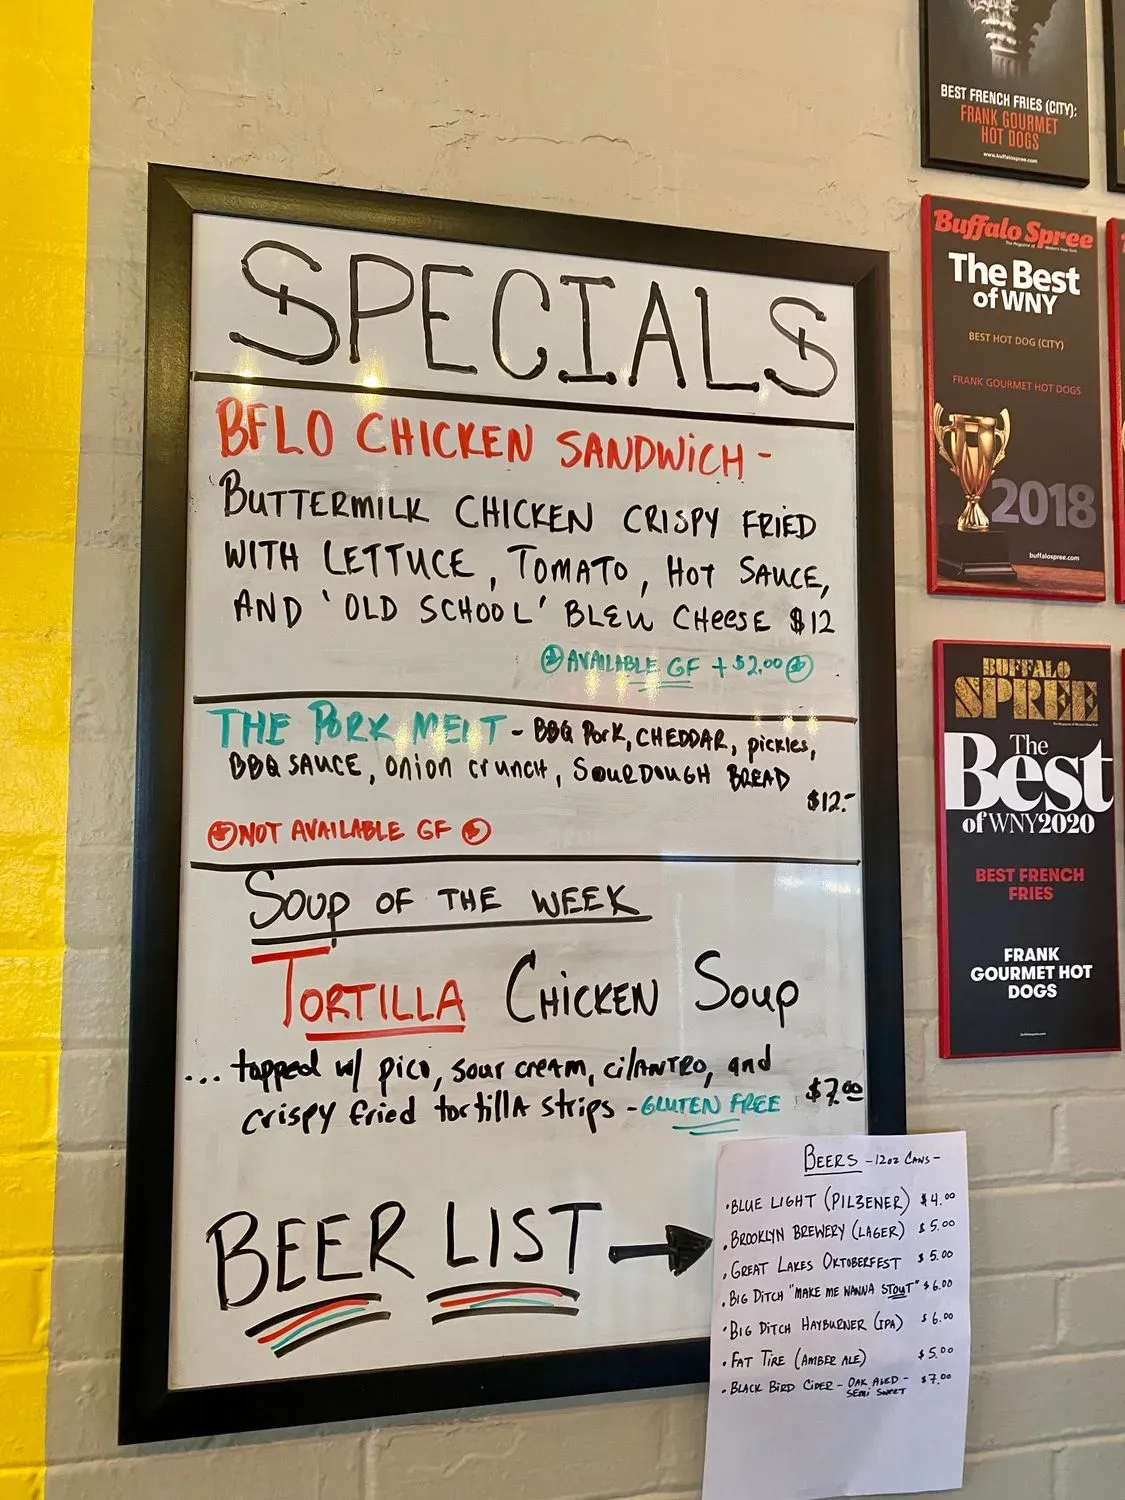 SPECIALS
BFLO CHICKEN SANDWICH -
BUTTERMILK CHICKEN CRISPY FRIED
WITH LETTUCE, TOMATO, HOT SAUCE,
AND 'OLD SCHOOL' BLEU CHEESE $12
AVAILABLE GF + $2.00
THE PORK MELT - BBQ PORK, CHEDDAR, pickles,
BBQ SAUCE, onion crunch, SOURDOUGH BREAD
$12.-
NOT AVAILABLE GF
SOUP OF THE WEEK
TORTILLA CHICKEN SOUP
... topped w/ pico, sour cream, cilANTRO, and
crispy fried tortillA strips - GLUTEN FREE $7.00
BEER LIST
BEERS - 12oz CANS -
• BLUE LIGHT (PILZENER) $4.00
• BROOKLYN BREWERY (LAGER) $5.00
• GREAT LAKES OKTOBERFEST $5.00
• BIG DITCH "MAKE ME WANNA STOUT" $6.00
• BIG DITCH HAYBURNER (IPA) $6.00
• FAT TIRE (AMBER ALE) $5.00
• BLACK BIRD CIDER - OAK AGED - $7.00
SEMI SWEET
BEST FRENCH FRIES (CITY):
FRANK GOURMET
HOT DOGS
www.buffalospree.com
Buffalo Spree
The Best
of WNY
BEST HOT DOG (CITY)
FRANK GOURMET HOT DOGS
2018
buffalospree.com
BUFFALO
SPREE
The
Best
of WNY2020
BEST FRENCH
FRIES
FRANK
GOURMET HOT
DOGS